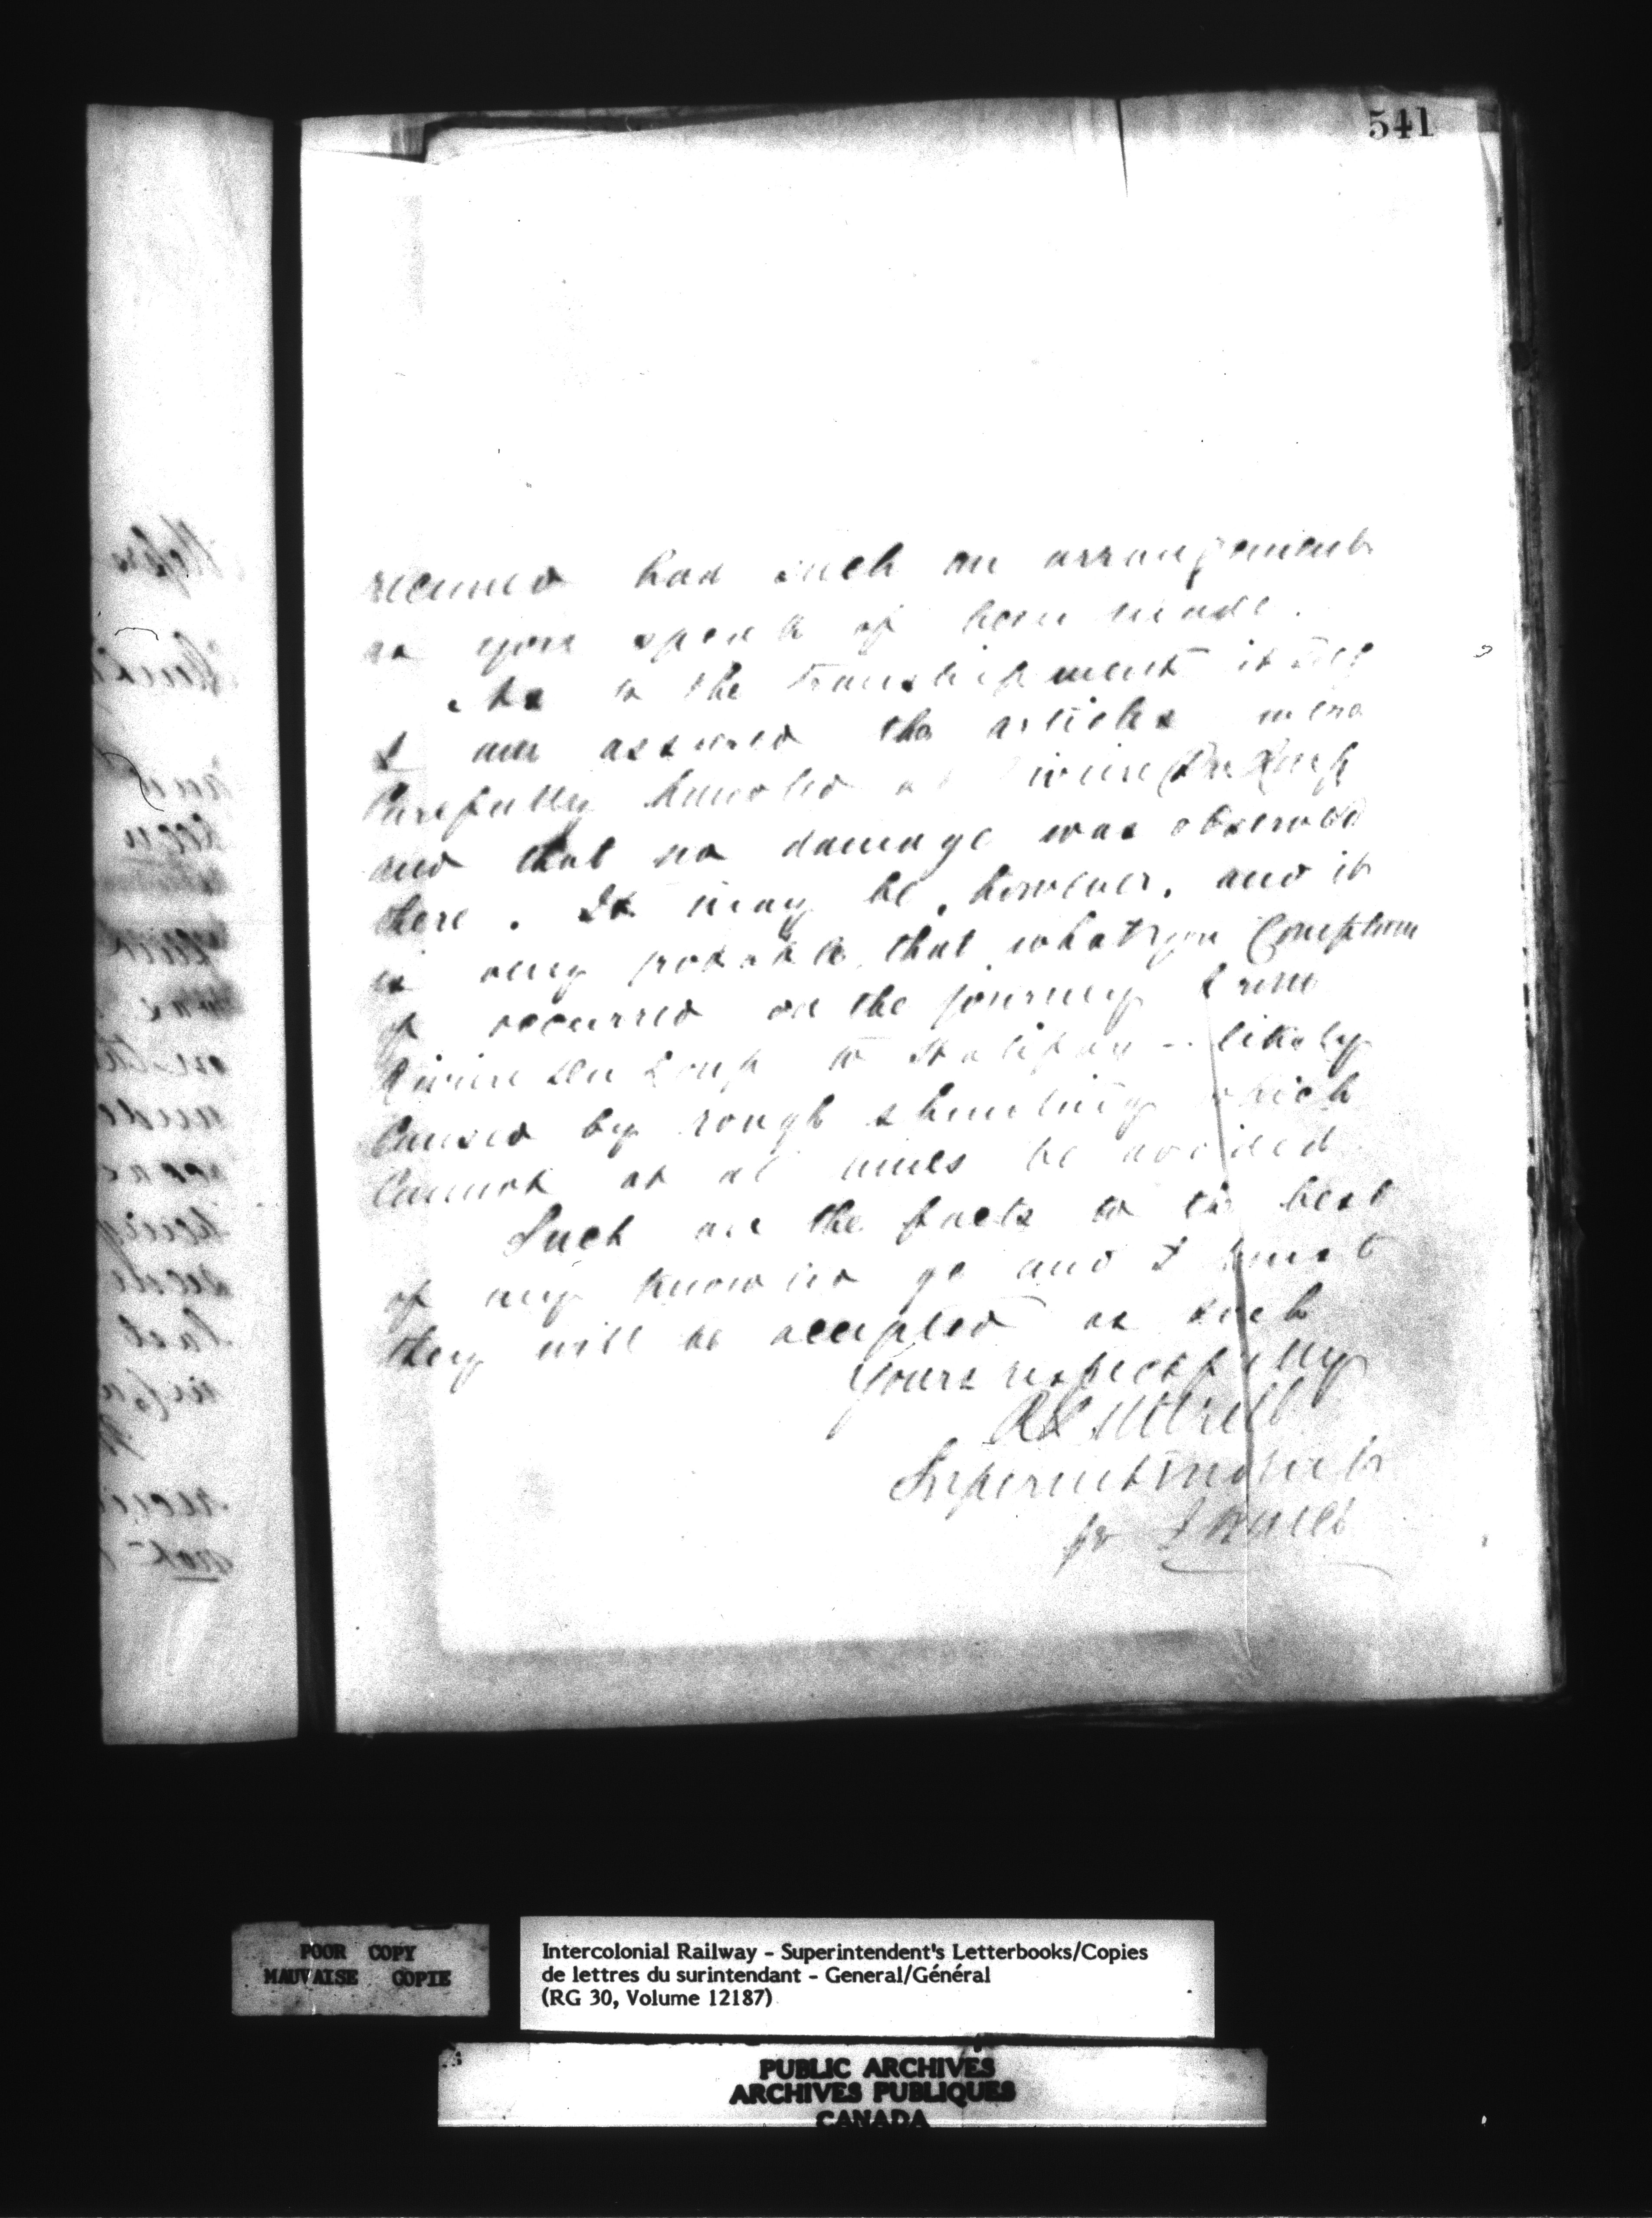 541
received had such an arrangement
as you speak of been made.
As to the transhipment itself
I am assured the articles were
Carefully handled at Riviere Du Loup
and that no damage was observed
there. It may be, however, and it
is very probable, that what you Complain
of occurred on the journey from
Riviere du Loup to Halifax - likely
Caused by rough shunting which
Cannot at all times be avoided.
Such are the facts to the best
of my knowledge and I trust
they will be accepted as such
Yours respectfully
Superintendent
pr
POOR COPY
MAUVAISE COPIE
Intercolonial Railway - Superintendent's Letterbooks/Copies
de lettres du surintendant - General/Général
(RG 30, Volume 12187)
PUBLIC ARCHIVES
ARCHIVES PUBLIQUES
CANADA